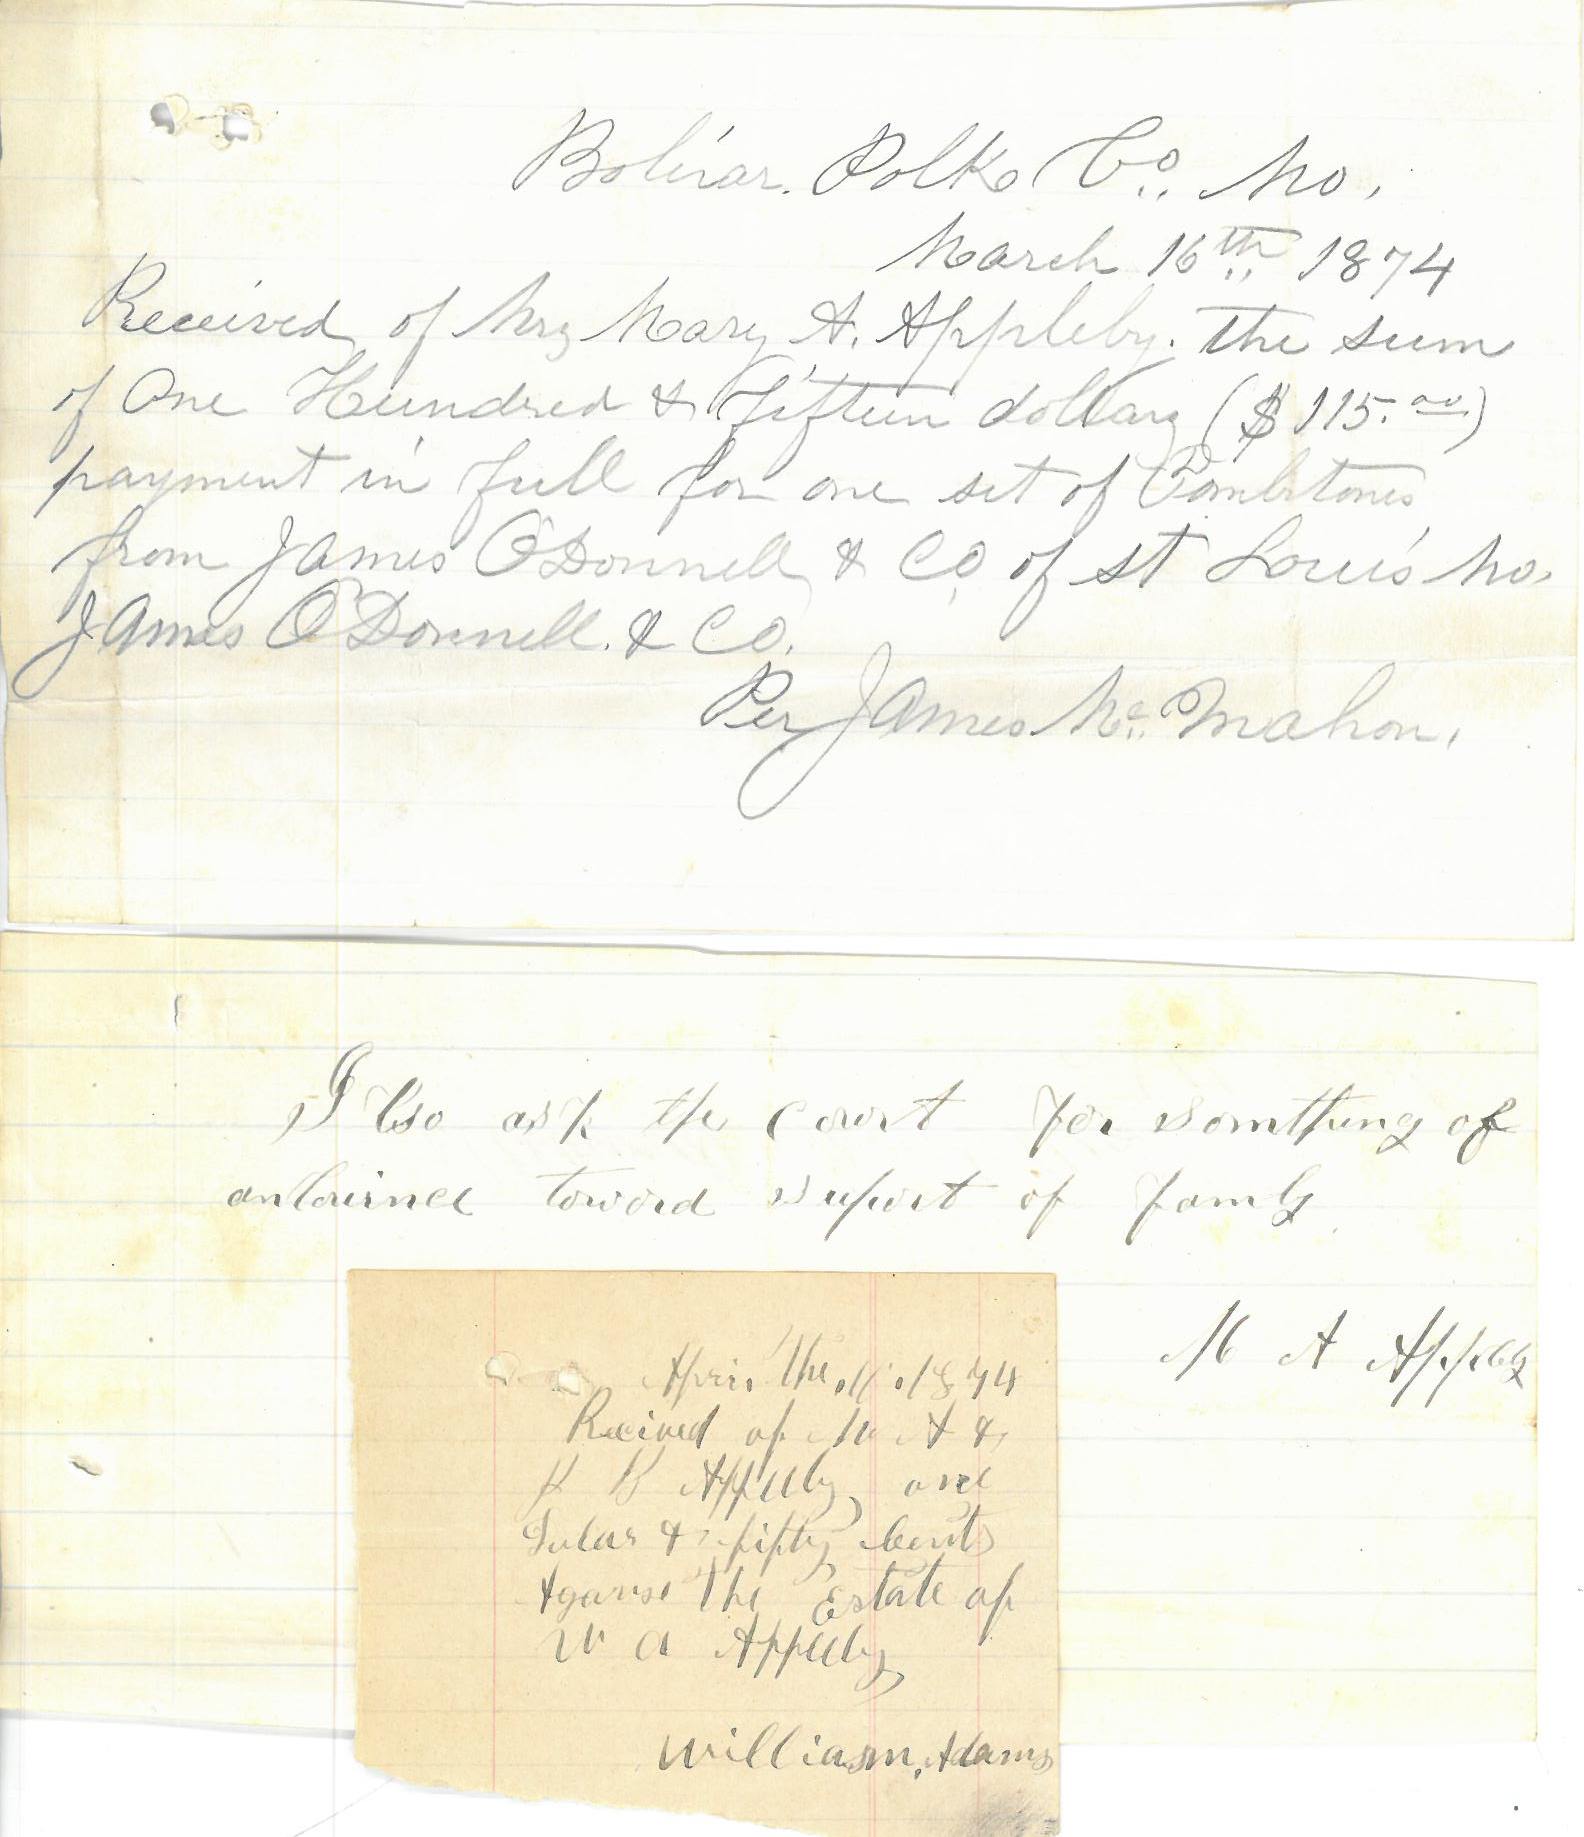 Bolivar. Polk Co. Mo.
March 16th 1874
Received of Mrs Mary A. Appleby. the sum
of One Hundred & Fifteen dollars ($115.00)
payment in full for one set of Tombstones
from James O'Donnell & Co. of st Louis Mo.
James O'Donnell. & Co.
Per James Mc. Mahon.
I also ask the Court for somthing of
toword suport of famly
M A Appleby
the 1874
Recived of M A &
B Appleby one
Dolar & fifty Cents
the Estate of
W A Appleby
William, Adams